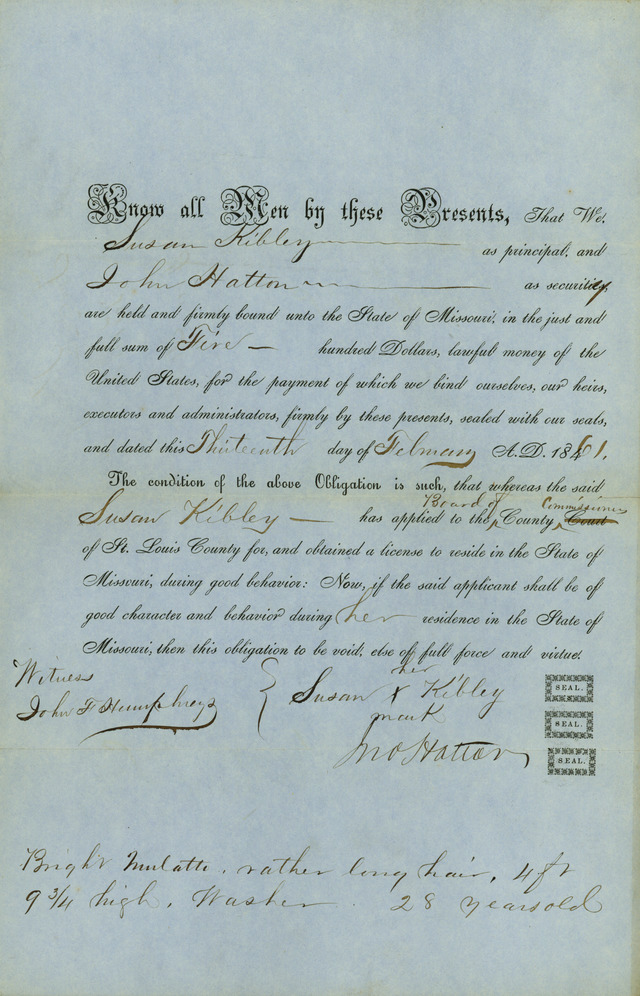 Know all Men by these Presents, That We,
Susan Kibley as principal, and
John Hatton as security,
are held and firmly bound unto the State of Missouri, in the just and
full sum of Five hundred Dollars, lawful money of the
United States, for the payment of which we bind ourselves, our heirs,
executors and administrators, firmly by these presents, sealed with our seals,
and dated this Thirteenth day of February A.D. 1861.
The condition of the above Obligation is such, that whereas the said
Board of Commissioners
Susan Kibley — has applied to the County Court
of St. Louis County for, and obtained a license to reside in the State of
Missouri, during good behavior: Now, if the said applicant shall be of
good character and behavior during her residence in the State of
Missouri, then this obligation to be void; else of full force and virtue.
Witness
her
Susan X Kibley SEAL.
John F Humphreys
mark SEAL.
Jno Hatton SEAL.
Bright Mulatto, rather long hair, 4 ft
9 3/4 high, Washer 28 years old